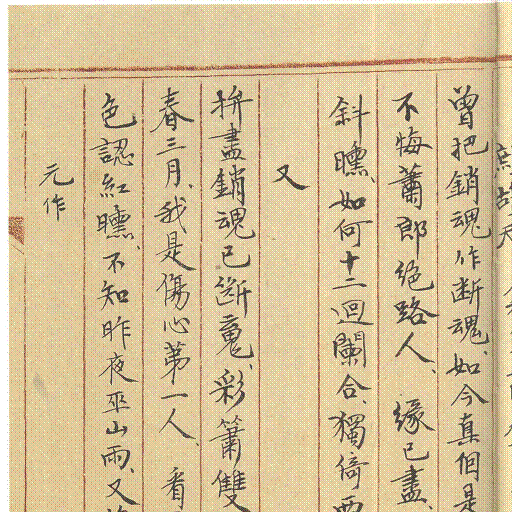 曾把銷魂作断魂、如今真個是
不悔蕭郎絕路人、緣已盡、
斜曛、如何十二迴闌合、獨倚西
又
拚盡銷魂已斷魂、彩簫雙
春三月、我是傷心第一人、看
色認紅曛、不知昨夜巫山雨、又
元作